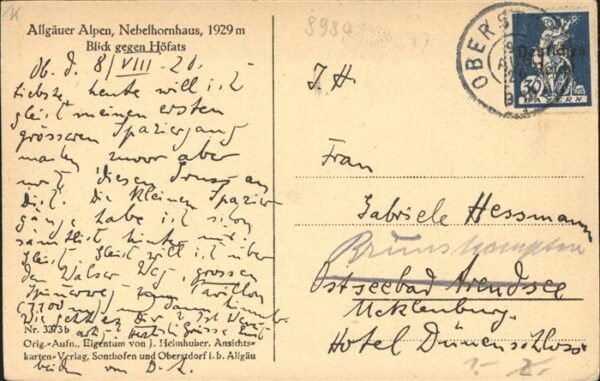 Allgäuer Alpen, Nebelhornhaus, 1929 m
Blick gegen Höfats
8934
Ob. d. 8/VIII. 20.
Liebste, heute will ich
gleich meinen ersten
grösseren Spaziergang
machen zuvor aber
noch diesen Gruss an
Dich. Die kleinen Spazier
gänge habe ich schon
sämtlich hinter mir.
Gleich will ich über
den Walser Weg, grossen
Pavillon
Herzlichste Grüsse
von
Nr. 3273b
Orig.-Aufn., Eigentum von J. Heimhuber. Ansichts-
karten-Verlag, Sonthofen und Oberstdorf i. b. Allgäu
OBERST
Deutsches
Reich
30
BAYERN
I. H.
Frau
Gabriele Hessmann
Brunshaupten
Ostseebad Arendsee
Mecklenburg.
Hotel Dünenschloss